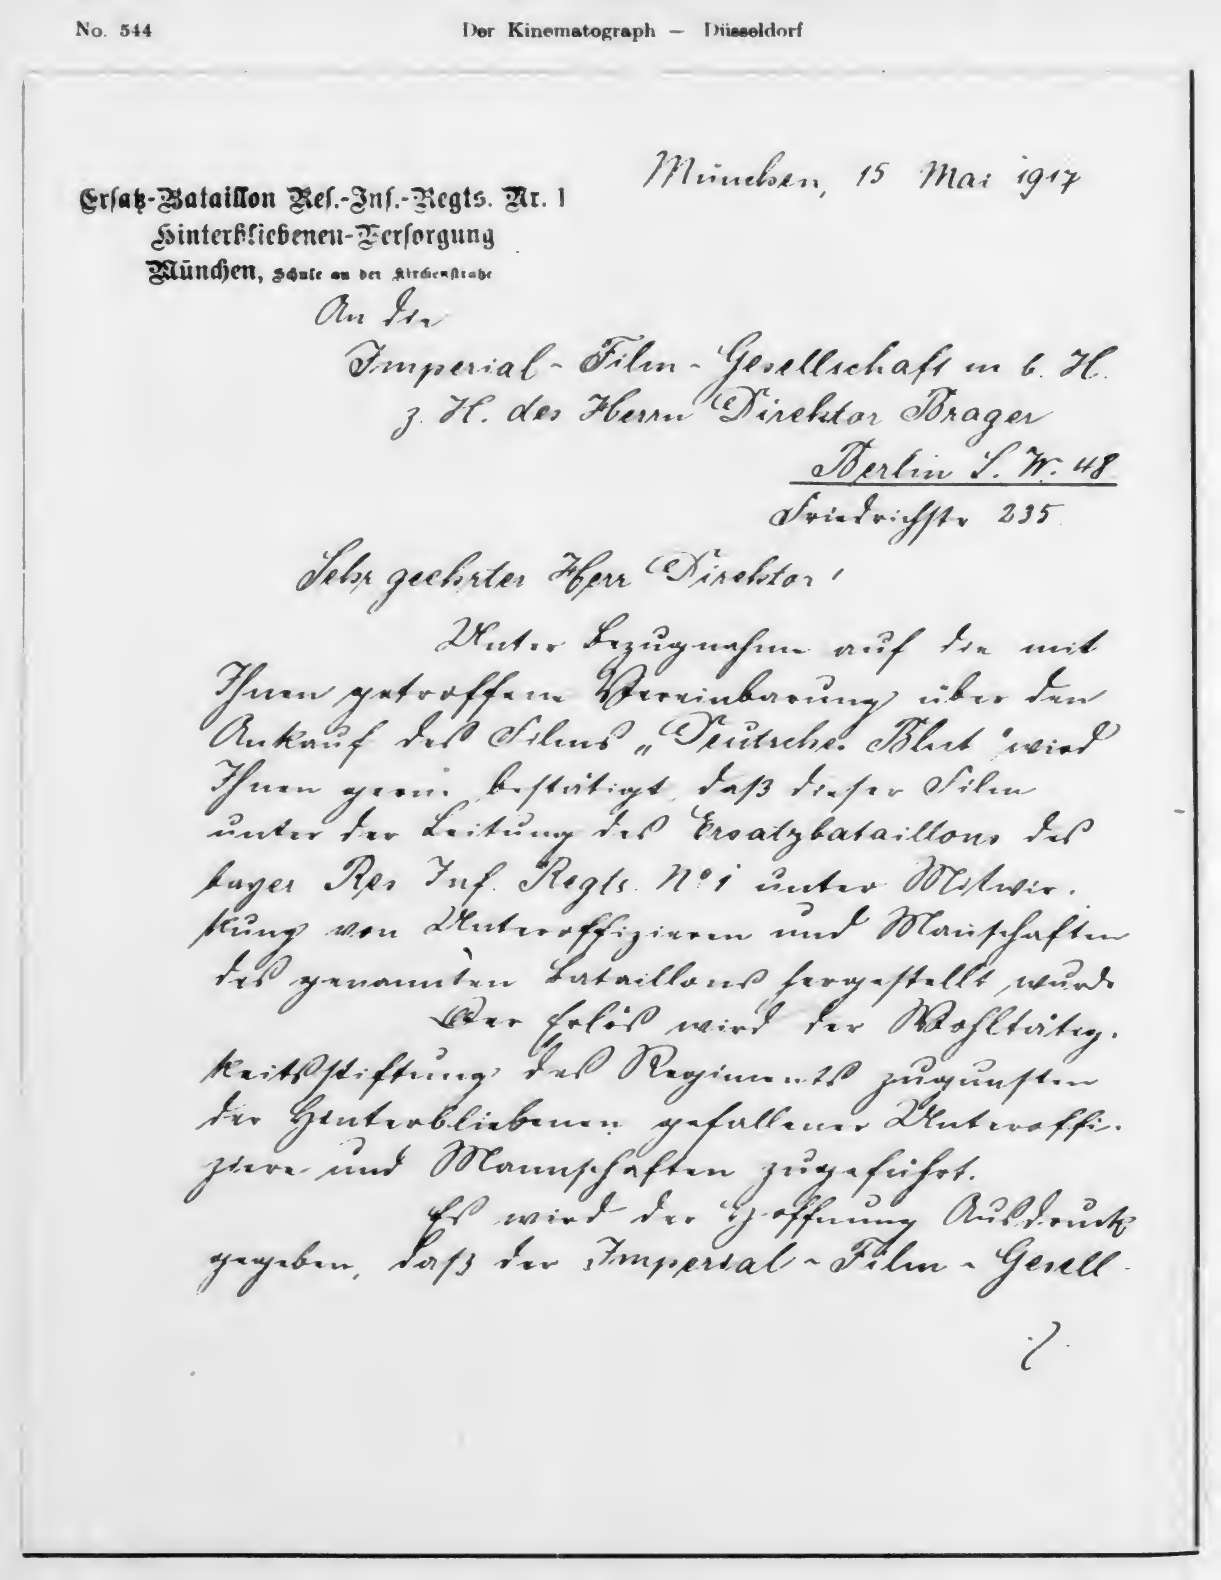 No. 544
Der Kinematograph — Düsseldorf
München, 15 Mai 1917
Ersatz-Bataillon Res.-Inf.-Regts. Nr. 1
Hinterbliebenen-Versorgung
München, Schule an der Kirchenstraße
An die
Imperial-Film-Gesellschaft m b. H.
z. H. des Herrn Direktor Brager
Berlin S. W. 48
Friedrichstr 235
Sehr geehrter Herr Direktor!
Unter Bezugnahme auf die mit
Ihnen getroffene Vereinbarung über den
Ankauf des Films „Deutsches Blut" wird
Ihnen gerne bestätigt, daß dieser Film
unter der Leitung des Ersatzbataillons des
bayer Res Inf. Regts. No 1 unter Mitwir-
kung von Unteroffizieren und Manschaften
des genannten Bataillons hergestellt wurde
Der Erlös wird der Wohltätig-
keitsstiftung des Regiments zugunsten
der Hinterbliebenen gefallener Unteroffi-
ziere und Mannschaften zugeführt.
Es wird der Hoffnung Ausdruck
gegeben, daß der Imperial-Film-Gesell-